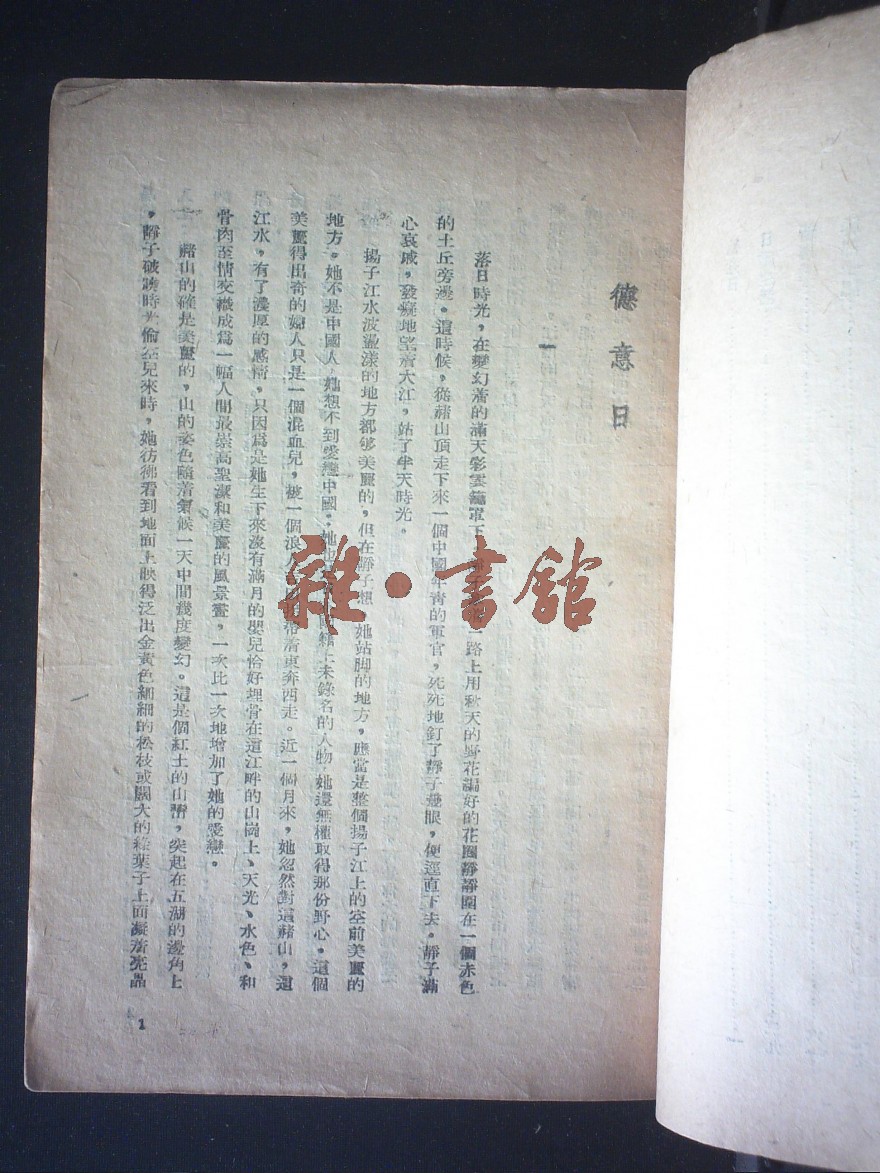 德意日
一
落日時光，在變幻着的滿天彩雲籠罩下，一路上用秋天的野花編好的花圈靜靜圍在一個赤色
的土丘旁邊。這時候，從赭山頂走下來一個中國年青的軍官，死死地釘了靜子幾眼，便逕直下去。靜子滿
心哀戚，發癡地望着大江，站了半天時光。
揚子江水波盪漾的地方都够美麗的，但在靜子想，她站脚的地方，應當是整個揚子江上的空前美麗的
地方。她不是中國人，她想不到愛戀中國，她也籍上未錄名的人物，她還無權取得那份野心。這個
美麗得出奇的婦人只是一個混血兒，被一個浪人帶着東奔西走。近一個月來，她忽然對這赭山，這
江水，有了濃厚的感情，只因爲是她生下來沒有滿月的嬰兒恰好埋骨在這江畔的山崗上、天光、水色、和
骨肉至情交織成爲一幅人間最崇高聖潔和美麗的風景畫，一次比一次地增加了她的愛戀。
赭山的確是美麗的，山的姿色隨着氣候一天中間幾度變幻。這是個紅土的山巒，突起在五湖的邊角上
，靜子破曉時光偷空兒來時，她彷彿看到地面上映得泛出金黃色細細的松枝或闊大的綠葉子上面凝着亮晶
1
雜·書館